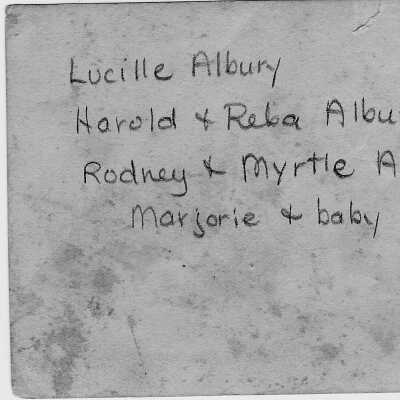 Lucille Albury
Harold & Reba Albu
Rodney & Myrtle A
Marjorie & baby